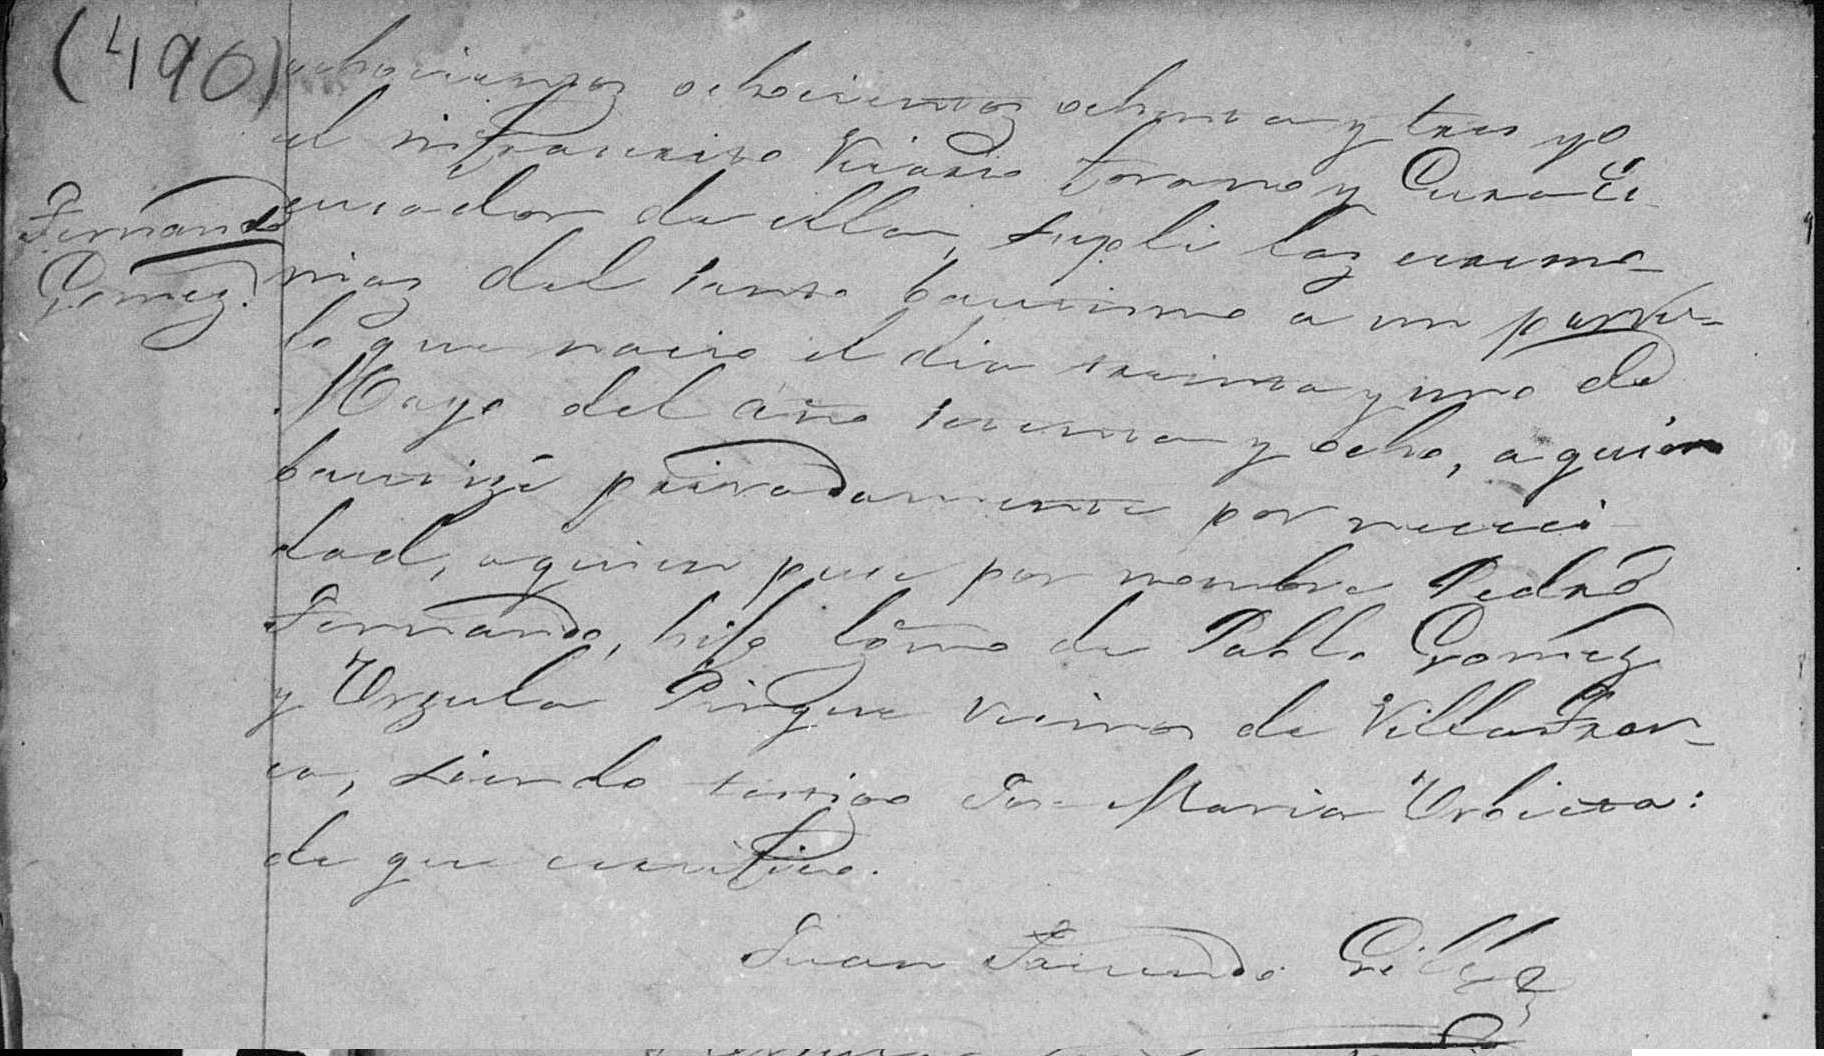 (490)
ochocientos ochocientos ochenta y tres yo
el infrascrito Vicario foraneo y Cura Ec
Fernando
Gomez.
suador de ella, supli las ceremo-
nias del santo bautismo a un parvu-
lo que nacio el dia treinta y uno de
Mayo del año setenta y ocho, a quien
bautizé privadamente por necesi
dad, a quien puse por nombre Pedro
Fernando, hijo lgmo de Pablo Gomez
y Urzula Pingue vecinos de Villa Fran-
ca, siendo testigo Jose Maria Urbieta:
de que certifico.
Juan Facundo Gill